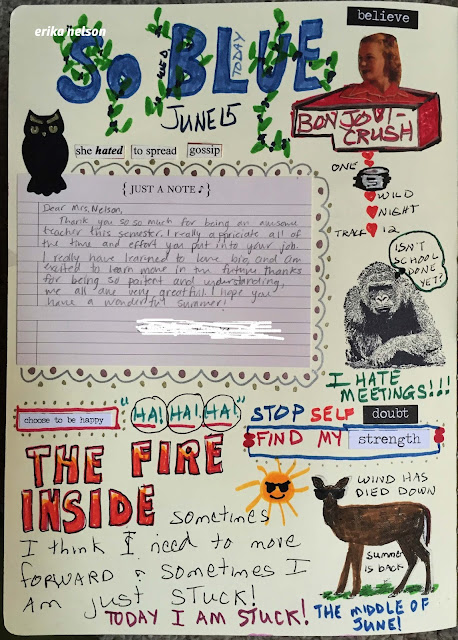 erika nelson
So BLUE
TODAY
JUNE 15
believe
BON JOVI-
CRUSH
she hated to spread gossip
{ JUST A NOTE ♪ }
Dear Mrs. Nelson,
Thank you so so much for being an awesome
teacher this semester. I really apriciate all of
the time and effort you put into your job.
I really have learned to love bio, and am
exited to learn more in the future. thanks
for being so patient and understanding,
we all are very greatful. I hope you
have a wonderful summer!
ONE
WILD
NIGHT
TRACK 12
ISN'T
SCHOOL
DONE
YET?
I HATE
MEETINGS!!!
choose to be happy
"HA! HA! HA!"
STOP SELF doubt
FIND MY strength
THE FIRE
INSIDE sometimes
I think I need to move
forward & sometimes I
Am just STUCK!
TODAY I AM STUCK!
WIND HAS
DIED DOWN
SUMMER
IS BACK
THE MIDDLE OF
JUNE!